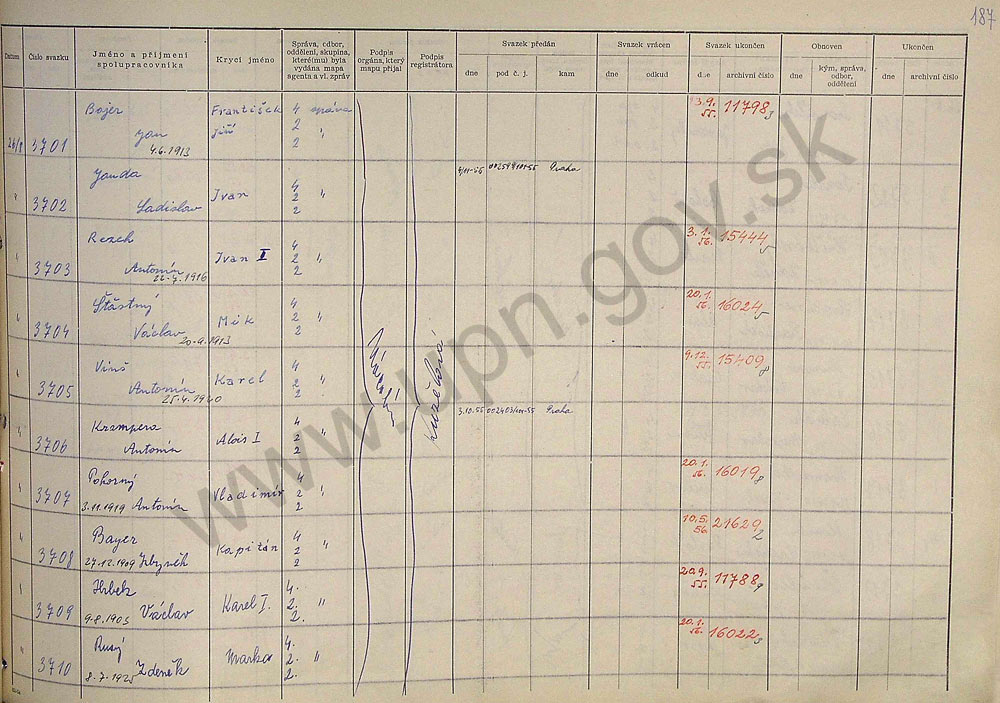 187
Datum
Číslo svazku
Jméno a příjmení
spolupracovníka
Krycí jméno
Správa, odbor,
oddělení, skupina,
které(mu) byla
vydána mapa
agenta a vl. zpráv
Podpis
orgána, který
mapu přijal
Podpis
registrátora
Svazek předán
dne
pod č. j.
kam
Svazek vrácen
dne
odkud
Svazek ukončen
dne
archivní číslo
Obnoven
dne
kým, správa,
odbor,
oddělení
Ukončen
dne
archivní číslo
3701 Bojer František 4 správa 3.9. 11798
Jan Jiří 2 " 55.
4.6.1913 2
Janda Praha
3702 Ivan 4
Ladislav 2 "
2
Rezek 4 3.1. 15444
3703 Ivan II 2 " 56.
Antonín 2
22.7.1916
Šťastný 4 20.1. 16024
3704 Václav Mik 2 " 56.
20.9.1913 2
Vinš 4 9.12. 15409
3705 Antonín Karel 2 " 55.
25.4.1920 2
Krampera 4 3.10.55 Praha
3706 Antonín Alois I 2 "
2
Pokorný 4 20.1. 16019
3707 Vladimír 2 " 56.
3.11.1919 Antonín 2
Bayer 4 10.5. 21629
3708 Kapitán 2 " 56.
27.12.1909 Zbyněk 2
Hrbek 4. 20.9. 11788
3709 Karel I. 2. " 55.
9.8.1905 Václav 2.
Rusý 4. 20.1. 16022
3710 2. " 56.
8.7.1925 Zdeněk 2.
www.upn.gov.sk